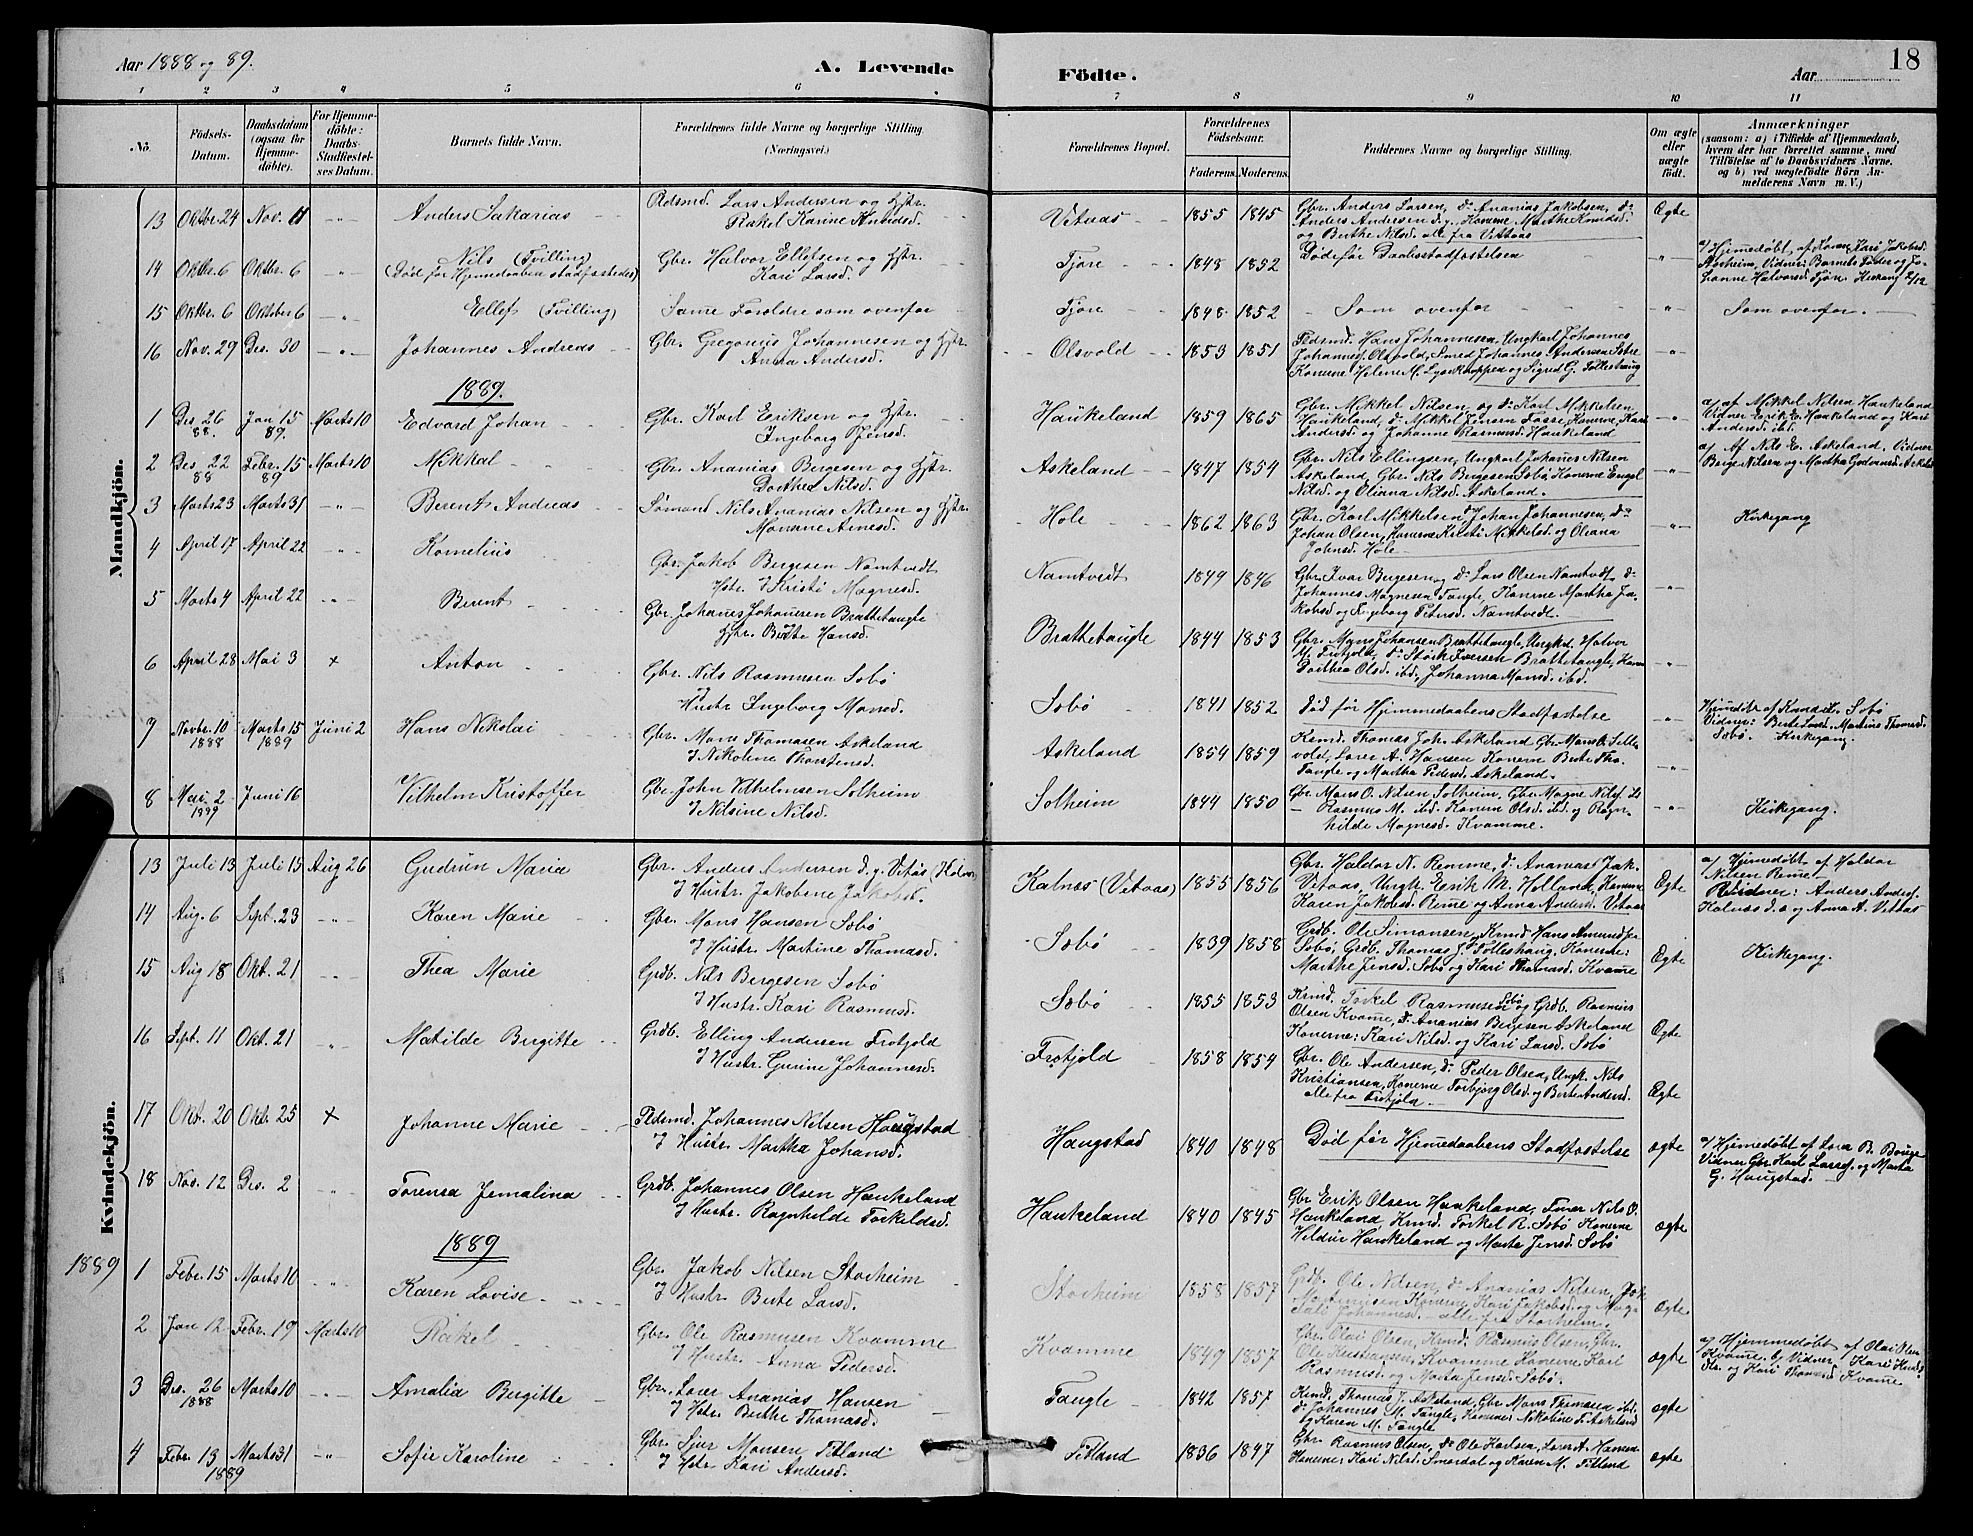 Aar 1888 og 89.
A. Levende
Födte.
Aar
18
1 2 3 4 5 6 7 8 9 10 11
No.
Födsels-Datum.
Daabsdatum (ogsaa for Hjemme-döbte).
For Hjemme-döbte: Daabs-Stadfæstel-ses Datum.
Barnets fulde Navn.
Forældrenes fulde Navne og borgerlige Stilling.
(Næringsvei.)
Forældrenes Bopæl.
Forældrenes Födselsaar.
Faderens. Moderens.
Faddernes Navne og borgerlige Stilling.
Om ægte eller uægte födt.
Anmærkninger
(saasom: a) i Tilfælde af Hjemmedaab, hvem der har forrettet samme, med Tilföielse af to Daabsvidners Navne. og b) ved uægtefödte Börn An-melderens Navn m. V.)
Mandkjön.
13 Oktbr. 24 Nov. 11 -"- Anders Sakarias Lars Andersen og Hstr. Rakel Karine Amundsd. Vitnas 1855 1845 Gbr. Anders Larsen, do Ananias Jakobsen, do Anders Andersen d. y., Konerne Marthe Knudsd. og Berthe Nilsd. alle fra Vittaas Ægte
14 Oktbr. 6 Oktbr. 6 -"- Nils (Tvilling) (Död før Hjemmedaaben stadfæstedes) Gbr. Halvor Ellefsen og Hstr. Kari Larsd. Tjore 1848 1852 Døde før Daabsstadfæstelsen -"- a/ Hjemmedøbt af Kari Jakobsd. Storheim, Vidner: Barnets Fader og Johanne Halvorsd. Tjöre
15 Oktbr. 6 Oktober 6 -"- Ellef (Tvilling) Same Foroldre som ovenfor Tjore 1848 1852 Som ovenfor -"- Som ovenfor.
16 Nov. 29 Des. 30 -"- Johannes Andreas Gbr. Gregorius Johannesen og Hstr. Anna Andersd. Olsvold 1853 1851 Hans Johannesen, Ungkarl Johannes Johannesen Olsvold, Smed Johannes Andersen Konerne Helene M. Lyseknappen og Sigrid G. Tollestvaag -"-
1889.
1 Des. 26 88. Jan. 15 89. Marts 10 Edvard Johan Gbr. Karl Eriksen og Hstr. Ingeborg Jensd. Haukeland 1859 1865 Gbr. Mikkel Nilsen, og do Karl Mikkelsen Haukeland, do Mikkel Jensen Fosse, Konerne Kari Andersd. og Johanne Rasmusd. Haukeland -"- a/ af Mikkel Nilsen Haukeland Vidner Erik E. Haukeland og Kari Andersd. ibd.
2 Des. 22 88 Febr. 15 89 Marts 10 Mikkal Gbr. Ananias Bergesen og Hstr. Dorthea Nilsd. Askeland 1847 1854 Gbr. Nils Ellingsen, Ungkarl Johanes Nilsen Askeland, Gbr. Nils Bergesen Sobö, Konerne Engel Nilsd. og Oliana Nilsd. Askeland. -"- a/ Af Nils E. Askeland. Vidner Berge Nilsen og Martha
3 Marts 23 Marts 31 -"- Berent Andreas Sømand Nils Ananias Nilsen og Hstr. Hole 1862 1863 Gbr. Karl Mikkelsen, do Johan Johannesen, do Johan Olsen, Konerne Kristi Mikkelsd. og Oliana Johnsd. Hole -"- Kirkegang
4 April 17 April 22 -"- Kornelius Gbr. Jakob Bergesen Namtvedt Hstr. Kristi Magnesd. Namtvedt 1849 1846 Gbr. Ivar Bergesen og do Lars Olsen Namtvedt do Johannes Magnesen Tangle, Konerne Martha Jakobsd og Ingeborg Petersd. Namtvedt. -"-
5 Marts 4 April 22 -"- Berent Gbr. Johanes Johanesen Brattetaugle og Hstr. Berte Hansd. Brattetaugle 1844 1853 Gbr. Mons Johansen Brattetaugle, Ungkr. Halvor M. Frotjold, do Störk Iversen Brattetaugle, Konerne Dorthea Olsd. ibd., Johanna Monsd. ibd. -"-
6 April 28 Mai 3 x Anton Gbr. Nils Rasmusen Sobö og Hustr Ingeborg Monsd. Sobö 1841 1852 Död før Hjemmedaabens Stadfæstelse -"- Hjemdöbt af Sobö Vidner: Berte Larsd. Martine Thomasd. Sobö. Kirkegang.
7 Novbr. 10 1888 Marts 15 1889 Juni 2 Hans Nikolai Gbr. Mons Thomasen Askeland Nikoline Thorstensd. Askeland 1854 1859 Thomas Joh. Askeland Gbr. Hansen Konerne Berte Tho. Tangle og Martha Pedersd. Askeland. -"-
8 Mai 2 1889 Juni 16 Vilhelm Kristoffer Gbr. John Vilhelmsen Solheim Nilsine Nilsd. Solheim 1844 1850 Gbr. Mons O. Nilsen Solheim, Gbr Magne Nilsen Rasmus M. ibd. Konerne Olsd. ibd. og Ragnhilde Magnesd. Kvamme. -"- Kirkegang.
Kvindekjön.
13 Juli 13 Juli 15 Aug 26 Gudrun Maria Gbr. Anders Andersen d. y. Vitaas Hustr. Jakobine Jakobsd. Kalnæs (Vitaas) 1855 1856 Gbr. Haldor N. Remme, do Ananias Jak. Vitaas, Ungk. Erik M. Holland, Konerne Karen Jakobsd. Reme og Anna Andersd. Vitaas Ægte a/ Hjemedöbt af Haldor Nilsen Reme Vidner: Anders Anders. Kalnæs d.æ og Anna A. Vittas
14 Aug. 6 Sept. 23 -"- Karen Marie Gbr. Mons Hansen Sobö Hustr. Martine Thomasd. Sobö 1839 1858 Grdb. Ole Simonsen, Krmd Hans Amundsen Sobö, Grdb. Thomas J. Tolleshaug, Konerne: Marthe Jensd. Sobö og Kari Thomasd. Kvame Ægte Kirkegang.
15 Aug 18 Okt. 21 -"- Thea Marie Grdb. Nils Bergesen Sobö Hustr. Kari Rasmusd. Sæbö 1855 1853 Krmd. Torkel Rasmusen Sobö og Grdb. Rasmus Olsen Kvame, do Ananias Bergesen Askeland Konerne: Kari Nilsd. og Kari Larsd. Sobö Ægte
16 Sept. 11 Okt. 21 -"- Matilde Birgitte Grdb. Elling Andersen Frotjold Hustr. Gurine Johannesd. Frotjold 1858 1854 Gbr. Ole Andersen, do Peder Olsen, Ungk. Nils Kristiansen, Konerne Torbjorg Olsd. og Berte Andersd. alle fra Frotjold Ægte
17 Okt. 20 Okt. 25 x Johanne Marie Johannes Nilsen Haugstad Hustr. Martha Johansd. Haugstad 1840 1848 Död før Hjemedaabens Stadfæstelse ægte a/ Hjemedöbt af Lars B. Vidner Gbr. Karl Larsen og Marta G. Haugstad.
18 Nov. 12 Des. 2 -"- Torensa Jemalina Grdb. Johannes Olsen Haukeland Hustr. Ragnhilde Torkeldsd. Haukeland 1840 1845 Gbr Erik Olsen Haukeland, Nils O. Haukeland, Krmd. Torkel R. Sobö Konerne Hildur Haukeland og Marta Jensd. Sobö ægte
1889
1889 1 Febr. 15 Marts 10 -"- Karen Lovise Gbr. Jakob Nilsen Storheim og Hustr. Berte Larsd. Storheim 1858 1857 Grdb. Ole Nilsen, do Ananias Nilsen, Martinusen Konerne Kari Jakobsd. og Johannesd. alle fra Storheim. ægte
2 Jan 12 Febr. 19 Marts 10 Rakel Gbr. Ole Rasmusen Kvamme Hustr. Anna Pedersd. Kvamme 1849 1857 Gbr. Olai Olsen, Krmd. Rasmus Olsen, Gbr. Ole Kristiansen, Kvamme Konerne Kari Rasmusd. og Marta Jensd. Sobö. ægte a/ Hjemmedöbt af Olai Olsen Kvame, b/ Vidner, Kari og Kari Thomasd Kvame
3 Des. 26 1888 Marts 10 -"- Amalia Birgitte Gbr. Ananias Hansen Hstr. Berthe Thomasd. Tangle 1842 1857 Krmd. Thomas J. Askeland, Gbr. Mons do Johannes M. Tangle, Konerne: Nikoline T. Askeland og Karen M. Tangle ægte
4 Febr. 13 1889 Marts 31 -"- Sofie Karoline Gbr. Sjur Monsen Titland Hstr Kari Andersd. Titland 1836 1847 Gbr. Rasmus Olsen, do Ole Karlsen, A. Hansen Konerne: Kari Nilsd. Smørdal og Karen M. Titland ægte